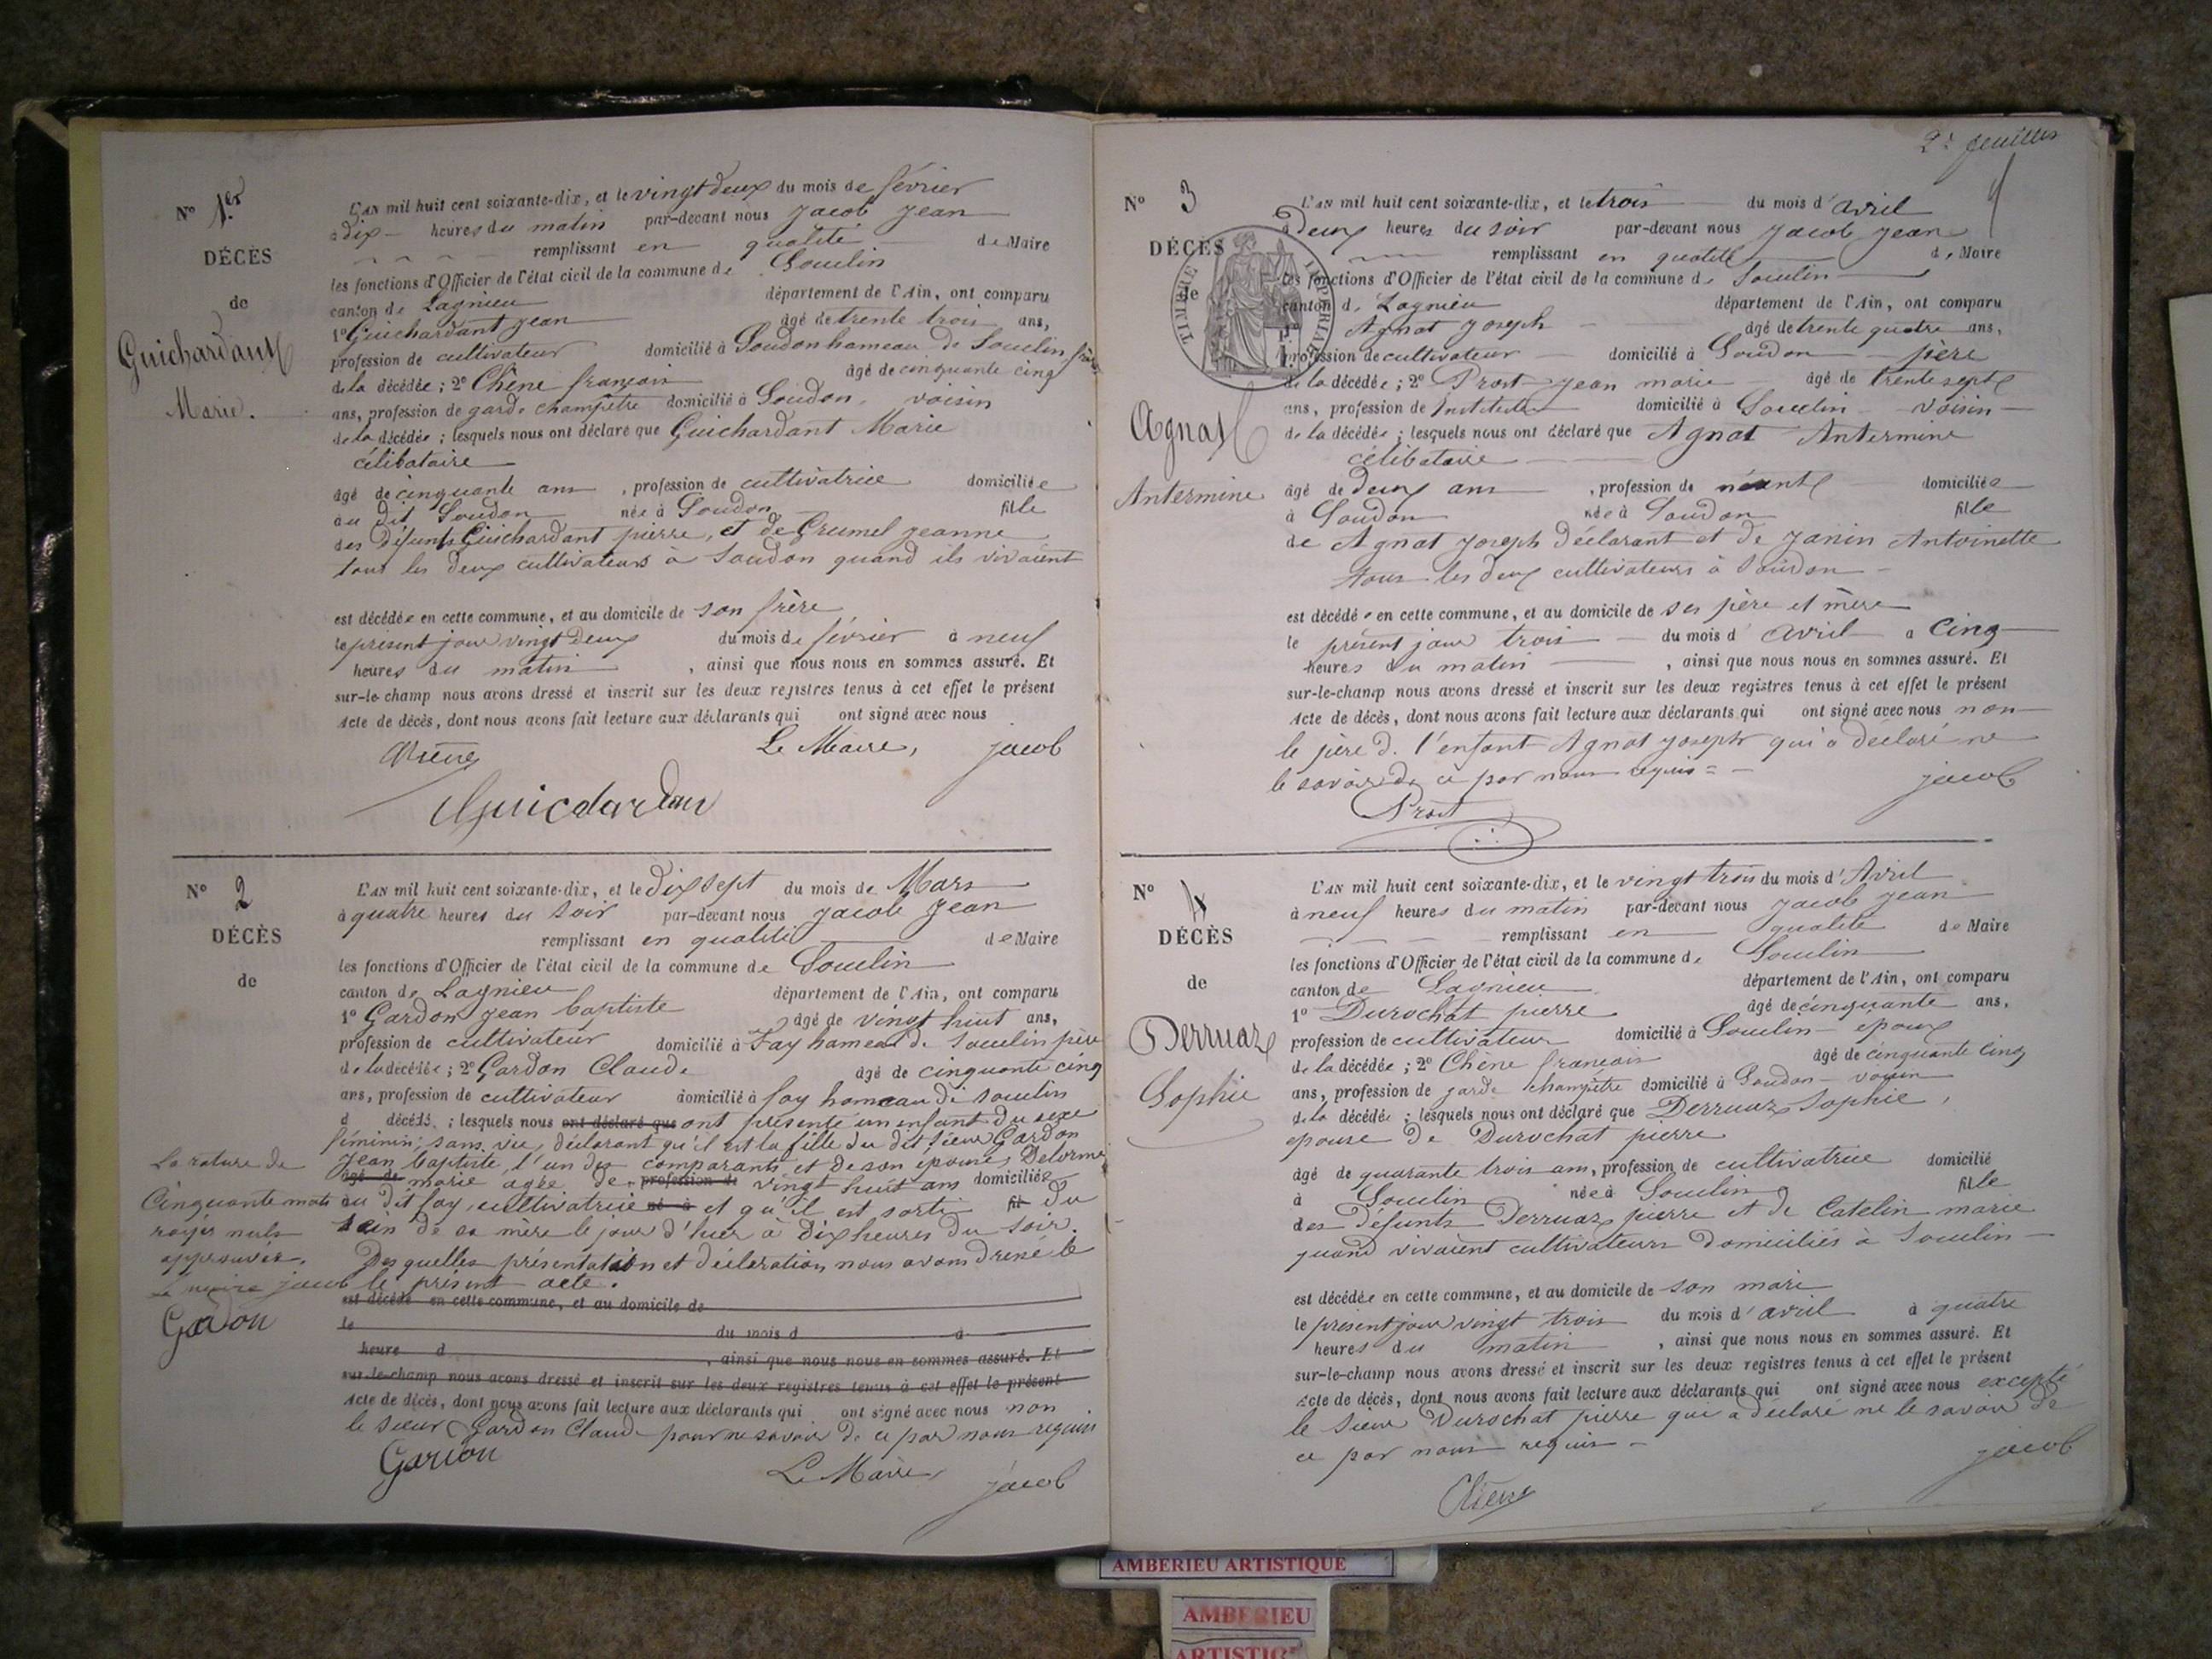 Nº 1er
DÉCÈS
de
Guichardant
Marie.
L'AN mil huit cent soixante-dix, et le vingt deux du mois de février
à dix heures du matin par-devant nous Jacob Jean
remplissant en qualité de Maire
les fonctions d'Officier de l'état civil de la commune de Souclin
canton de Lagnieu département de l'Ain, ont comparu
1º Guichardant Jean âgé de trente trois ans,
profession de cultivateur domicilié à Soudon hameau de Souclin frère
de la décédée ; 2º Chêne françois âgé de cinquante cinq
ans, profession de garde champêtre domicilié à Soudon, voisin
de la décédée ; lesquels nous ont déclaré que Guichardant Marie
célibataire
âgé de cinquante ans , profession de cultivatrice domiciliée
au dit Soudon née à Soudon fille
des défunts Guichardant pierre, et de Grumel Jeanne
tous les deux cultivateurs à Soudon quand ils vivaient
est décédée en cette commune, et au domicile de son frère
le présent jour vingt deux du mois de février à neuf
heures du matin , ainsi que nous nous en sommes assuré. Et
sur-le-champ nous avons dressé et inscrit sur les deux registres tenus à cet effet le présent
Acte de décès, dont nous avons fait lecture aux déclarants qui ont signé avec nous
Chêne Le Maire, Jacob
Guicdardan
Nº 2
DÉCÈS
de
L'AN mil huit cent soixante-dix, et le dix sept du mois de Mars
à quatre heures du soir par-devant nous Jacob Jean
remplissant en qualité de Maire
les fonctions d'Officier de l'état civil de la commune de Souclin
canton de Lagnieu département de l'Ain, ont comparu
1º Gardon Jean baptiste âgé de vingt huit ans,
profession de cultivateur domicilié à Fay hameau de Souclin père
de la décédée ; 2º Gardon Claude âgé de cinquante cinq
ans, profession de cultivateur domicilié à fay hameau de Souclin
d décédé ; lesquels nous ont déclaré que ont présenté un enfant du sexe
féminin, sans vie, déclarant qu'il est la fille du dit sieur Gardon
Jean baptiste, l'un des comparants, et de son épouse, Delorme
âgé de marie agée de profession de vingt huit ans domiciliée
au dit fay, cultivatrice né à et qu'il est sorti fil du
sein de sa mère le jour d'hier à dix heures du soir.
Des quelles présentation et déclaration nous avons dressé le
le présent acte.
La rature de
Cinquante mots
rayés nuls
approuvée.
Le maire Jacob
Gardon
est décédé en cette commune, et au domicile de
le du mois d à
heure d , ainsi que nous nous en sommes assuré. Et
sur-le-champ nous avons dressé et inscrit sur les deux registres tenus à cet effet le présent
Acte de décès, dont nous avons fait lecture aux déclarants qui ont signé avec nous non
le sieur Gardon Claude pour ne savoir de ce par nous requis
Gardon Le Maire, Jacob
2e feuillet
Nº 3
DÉCÈS
de
Agnat
Antermine
TIMBRE IMPÉRIAL
L'AN mil huit cent soixante-dix, et le trois du mois d'Avril
à Deux heures du soir par-devant nous Jacob Jean
remplissant en qualité de Maire
les fonctions d'Officier de l'état civil de la commune de Souclin
canton de Lagnieu département de l'Ain, ont comparu
1º Agnat Joseph âgé de trente quatre ans,
profession de cultivateur domicilié à Soudon père
de la décédée ; 2º Prost Jean marie âgé de trente sept
ans, profession de Instituteur domicilié à Souclin voisin
de la décédée ; lesquels nous ont déclaré que Agnat Antermine
célibataire
âgé de deux ans , profession de néant domiciliée
à Soudon née à Soudon fille
de Agnat Joseph déclarant et de Janin Antoinette
tous les deux cultivateurs à Soudon
est décédée en cette commune, et au domicile de ses père et mère
le présent jour trois du mois d'avril à cinq
heures du matin , ainsi que nous nous en sommes assuré. Et
sur-le-champ nous avons dressé et inscrit sur les deux registres tenus à cet effet le présent
Acte de décès, dont nous avons fait lecture aux déclarants qui ont signé avec nous non
le père de l'enfant Agnat Joseph qui a déclaré ne
le savoir de ce par nous requis
Prost Jacob
Nº 4
DÉCÈS
de
Derruaz
Sophie
L'AN mil huit cent soixante-dix, et le vingt trois du mois d'Avril
à neuf heures du matin par-devant nous Jacob Jean
remplissant en qualité de Maire
les fonctions d'Officier de l'état civil de la commune de Souclin
canton de Lagnieu département de l'Ain, ont comparu
1º Durochat pierre âgé de cinquante ans,
profession de cultivateur domicilié à Souclin époux
de la décédée ; 2º Chêne françois âgé de cinquante cinq
ans, profession de garde champêtre domicilié à Soudon voisin
de la décédée ; lesquels nous ont déclaré que Derruaz Sophie,
épouse de Durochat pierre
âgé de quarante trois ans, profession de cultivatrice domicilié
à Souclin née à Souclin fille
des défunts Derruaz pierre et de Catelin marie
quand vivaient cultivateurs domiciliés à Souclin
est décédée en cette commune, et au domicile de son mari
le présent jour vingt trois du mois d'avril à quatre
heures du matin , ainsi que nous nous en sommes assuré. Et
sur-le-champ nous avons dressé et inscrit sur les deux registres tenus à cet effet le présent
Acte de décès, dont nous avons fait lecture aux déclarants qui ont signé avec nous excepté
le sieur Durochat pierre qui a déclaré ne le savoir de
ce par nous requis
Chêne Jacob
AMBERIEU ARTISTIQUE
AMBERIEU
ARTISTIQUE